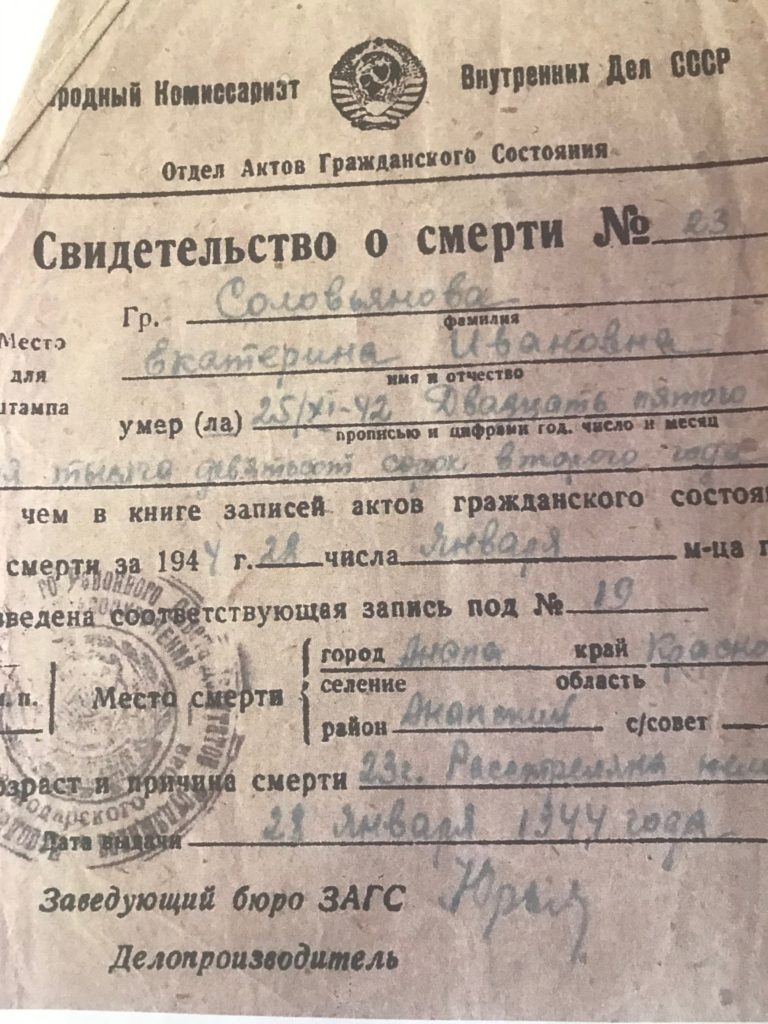 родный Комиссариат Внутренних Дел СССР
Отдел Актов Гражданского Состояния
Свидетельство о смерти № 23
Гр. Соловьянова
фамилия
Место
для
тампа
Екатерина Ивановна
имя и отчество
умер (ла) 25/XI-42 Двадцать пятого
прописью и цифрами год, число и месяц
я тысяча девятьсот сорок второго года
чем в книге записей актов гражданского состоя
смерти за 1944 г. 28 числа Января м-ца г
зведена соответствующая запись под № 19
. п. Место смерти
город Анапа край Красно
селение область
район Анапский с/совет
озраст и причина смерти 23 г. Расстреляна нем
Дата выдачи 28 января 1944 года
Заведующий бюро ЗАГС
Делопроизводитель